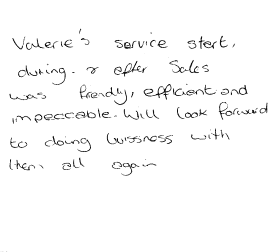 Valerie's service start,
during. & after Sales
was frendly, efficient and
impeccable. Will look forward
to doing bussness with
them all again